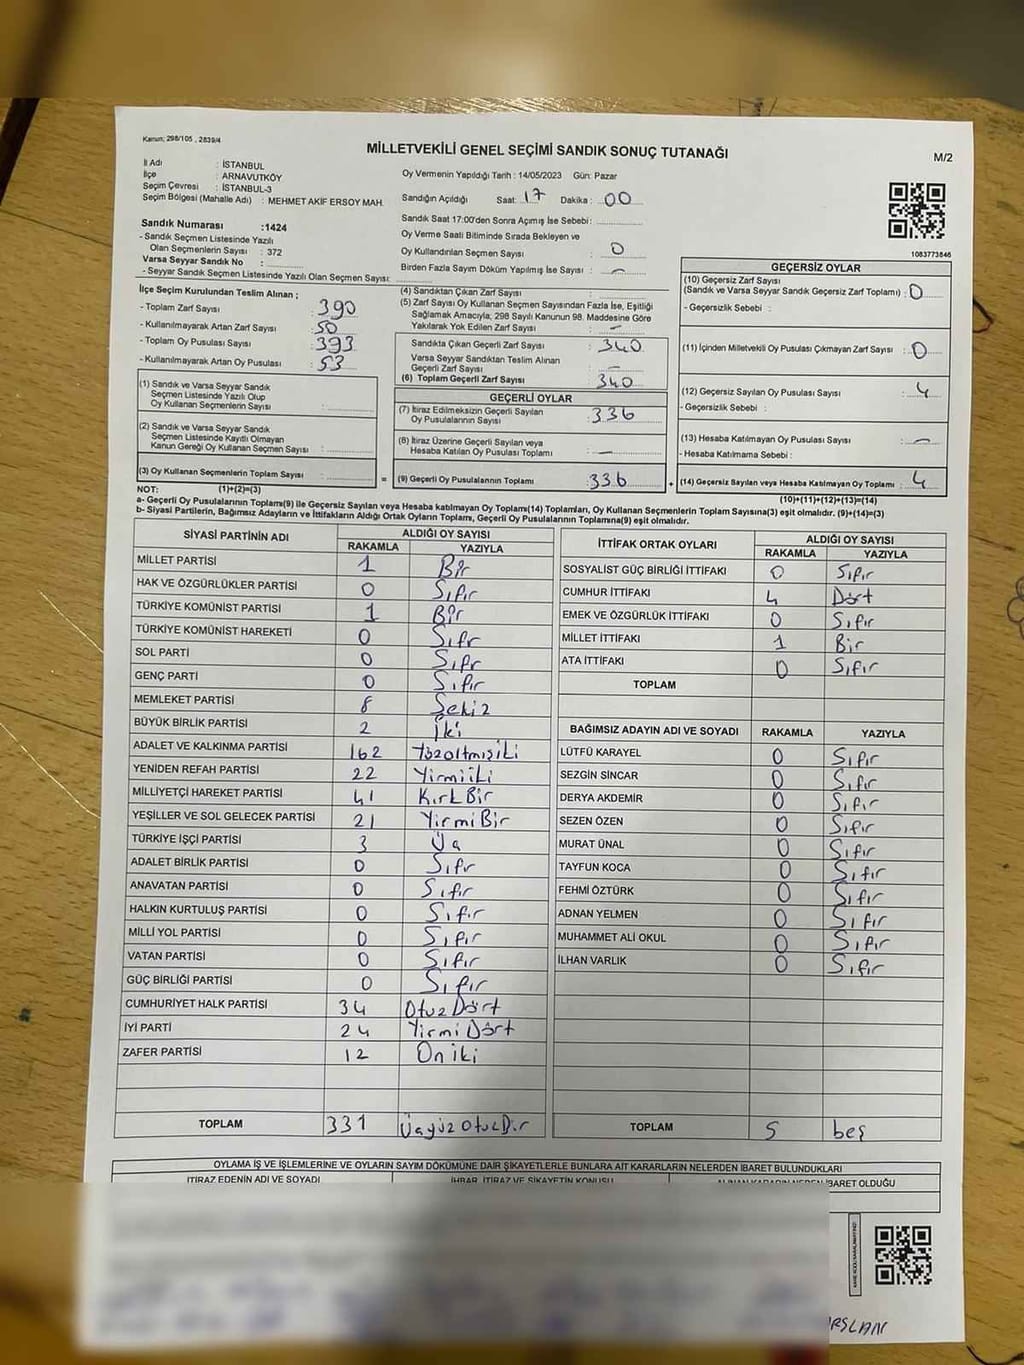 Kanun; 298/105 , 2839/4
MİLLETVEKİLİ GENEL SEÇİMİ SANDIK SONUÇ TUTANAĞI
M/2
İl Adı : İSTANBUL
İlçe : ARNAVUTKÖY
Seçim Çevresi : İSTANBUL-3
Seçim Bölgesi (Mahalle Adı) : MEHMET AKİF ERSOY MAH.
Sandık Numarası :1424
- Sandık Seçmen Listesinde Yazılı
Olan Seçmenlerin Sayısı : 372
Varsa Seyyar Sandık No :
- Seyyar Sandık Seçmen Listesinde Yazılı Olan Seçmen Sayısı:
Oy Vermenin Yapıldığı Tarih : 14/05/2023 Gün: Pazar
Sandığın Açıldığı Saat: 17 Dakika : 00
Sandık Saat 17:00'den Sonra Açımış İse Sebebi :
Oy Verme Saati Bitiminde Sırada Bekleyen ve
Oy Kullandırılan Seçmen Sayısı : 0
Birden Fazla Sayım Döküm Yapılmış İse Sayısı : -
1083773846
İlçe Seçim Kurulundan Teslim Alınan ;
- Toplam Zarf Sayısı : 390
- Kullanılmayarak Artan Zarf Sayısı : 50
- Toplam Oy Pusulası Sayısı : 393
- Kullanılmayarak Artan Oy Pusulası : 53
(1) Sandık ve Varsa Seyyar Sandık
Seçmen Listesinde Yazılı Olup
Oy Kullanan Seçmenlerin Sayısı :
(2) Sandık ve Varsa Seyyar Sandık
Seçmen Listesinde Kayıtlı Olmayan
Kanun Gereği Oy Kullanan Seçmen Sayısı :
(3) Oy Kullanan Seçmenlerin Toplam Sayısı :
(4) Sandıktan Çıkan Zarf Sayısı :
(5) Zarf Sayısı Oy Kullanan Seçmen Sayısından Fazla İse, Eşitliği
Sağlamak Amacıyla; 298 Sayılı Kanunun 98. Maddesine Göre
Yakılarak Yok Edilen Zarf Sayısı : -
Sandıkta Çıkan Geçerli Zarf Sayısı : 340
Varsa Seyyar Sandıktan Teslim Alınan
Geçerli Zarf Sayısı : -
(6) Toplam Geçerli Zarf Sayısı : 340
GEÇERLİ OYLAR
(7) İtiraz Edilmeksizin Geçerli Sayılan
Oy Pusulalarının Sayısı : 336
(8) İtiraz Üzerine Geçerli Sayılan veya
Hesaba Katılan Oy Pusulası Toplamı : -
= (9) Geçerli Oy Pusulalarının Toplamı : 336 +
GEÇERSİZ OYLAR
(10) Geçersiz Zarf Sayısı
(Sandık ve Varsa Seyyar Sandık Geçersiz Zarf Toplamı) : 0
- Geçersizlik Sebebi :
(11) İçinden Milletvekili Oy Pusulası Çıkmayan Zarf Sayısı : 0
(12) Geçersiz Sayılan Oy Pusulası Sayısı : 4
- Geçersizlik Sebebi :
(13) Hesaba Katılmayan Oy Pusulası Sayısı : -
- Hesaba Katılmama Sebebi :
(14) Geçersiz Sayılan veya Hesaba Katılmayan Oy Toplamı : 4
NOT: (1)+(2)=(3) (10)+(11)+(12)+(13)=(14)
a- Geçerli Oy Pusulasının Toplamı(9) ile Geçersiz Sayılan veya Hesaba katılmayan Oy Toplamı(14) Toplamları, Oy Kullanan Seçmenlerin Toplam Sayısına(3) eşit olmalıdır. (9)+(14)=(3)
b- Siyasi Partilerin, Bağımsız Adayların ve İttifakların Aldığı Ortak Oyların Toplamı, Geçerli Oy Pusulasının Toplamına(9) eşit olmalıdır.
SİYASİ PARTİNİN ADI ALDIĞI OY SAYISI
RAKAMLA YAZIYLA
MİLLET PARTİSİ 1 Bir
HAK VE ÖZGÜRLÜKLER PARTİSİ 0 Sıfır
TÜRKİYE KOMÜNİST PARTİSİ 1 Bir
TÜRKİYE KOMÜNİST HAREKETİ 0 Sıfr
SOL PARTİ 0 Sıfr
GENÇ PARTİ 0 Sıfır
MEMLEKET PARTİSİ 8 Sekiz
BÜYÜK BİRLİK PARTİSİ 2 İki
ADALET VE KALKINMA PARTİSİ 162 Yüzaltmışiki
YENİDEN REFAH PARTİSİ 22 Yirmiiki
MİLLİYETÇİ HAREKET PARTİSİ 41 KırkBir
YEŞİLLER VE SOL GELECEK PARTİSİ 21 YirmiBir
TÜRKİYE İŞÇİ PARTİSİ 3 Üç
ADALET BİRLİK PARTİSİ 0 Sıfır
ANAVATAN PARTİSİ 0 Sıfır
HALKIN KURTULUŞ PARTİSİ 0 Sıfır
MİLLİ YOL PARTİSİ 0 Sıfır
VATAN PARTİSİ 0 Sıfır
GÜÇ BİRLİĞİ PARTİSİ 0 Sıfır
CUMHURİYET HALK PARTİSİ 34 OtuzDört
İYİ PARTİ 24 Yirmi Dört
ZAFER PARTİSİ 12 On iki
TOPLAM 331 ÜçyüzOtuzBir
İTTİFAK ORTAK OYLARI ALDIĞI OY SAYISI
RAKAMLA YAZIYLA
SOSYALİST GÜÇ BİRLİĞİ İTTİFAKI 0 Sıfır
CUMHUR İTTİFAKI 4 Dört
EMEK VE ÖZGÜRLÜK İTTİFAKI 0 Sıfır
MİLLET İTTİFAKI 1 Bir
ATA İTTİFAKI 0 Sıfır
TOPLAM
BAĞIMSIZ ADAYIN ADI VE SOYADI RAKAMLA YAZIYLA
LÜTFÜ KARAYEL 0 Sıfır
SEZGİN SİNCAR 0 Sıfır
DERYA AKDEMİR 0 Sıfır
SEZEN ÖZEN 0 Sıfır
MURAT ÜNAL 0 Sıfır
TAYFUN KOCA 0 Sıfır
FEHMİ ÖZTÜRK 0 Sıfır
ADNAN YELMEN 0 Sıfır
MUHAMMET ALİ OKUL 0 Sıfır
İLHAN VARLIK 0 Sıfır
TOPLAM 5 beş
OYLAMA İŞ VE İŞLEMLERİNE VE OYLARIN SAYIM DÖKÜMÜNE DAİR ŞİKAYETLERLE BUNLARA AİT KARARLARIN NELERDEN İBARET BULUNDUKLARI
İTİRAZ EDENİN ADI VE SOYADI İHBAR, İTİRAZ VE ŞİKAYETİN KONUSU ALINAN KARARIN NEDEN İBARET OLDUĞU